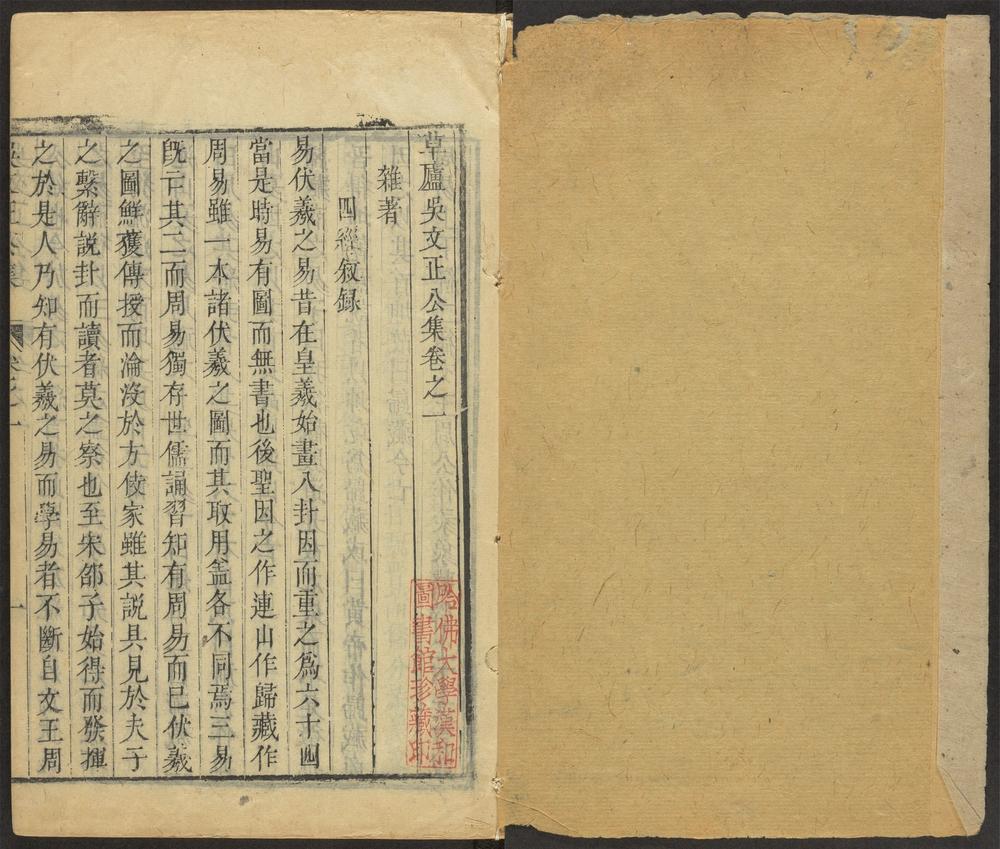 草廬吳文正公集卷之一
雜著
四經叙録
易伏羲之易昔在皇羲始畫八卦因而重之爲六十四
當是時易有圖而無書也後聖因之作連山作歸藏作
周易雖一本諸伏羲之圖而其取用盖各不同焉三易
旣亡其二而周易獨存世儒誦習知有周易而已伏羲
之圖鮮獲傳授而淪沒於方伎家雖其說具見於夫子
之繫辭說卦而讀者莫之察也至宋邵子始得而發揮
之於是人乃知有伏羲之易而學易者不斷自文王周
卷之一
一
哈佛大學漢和
圖書館珍藏印